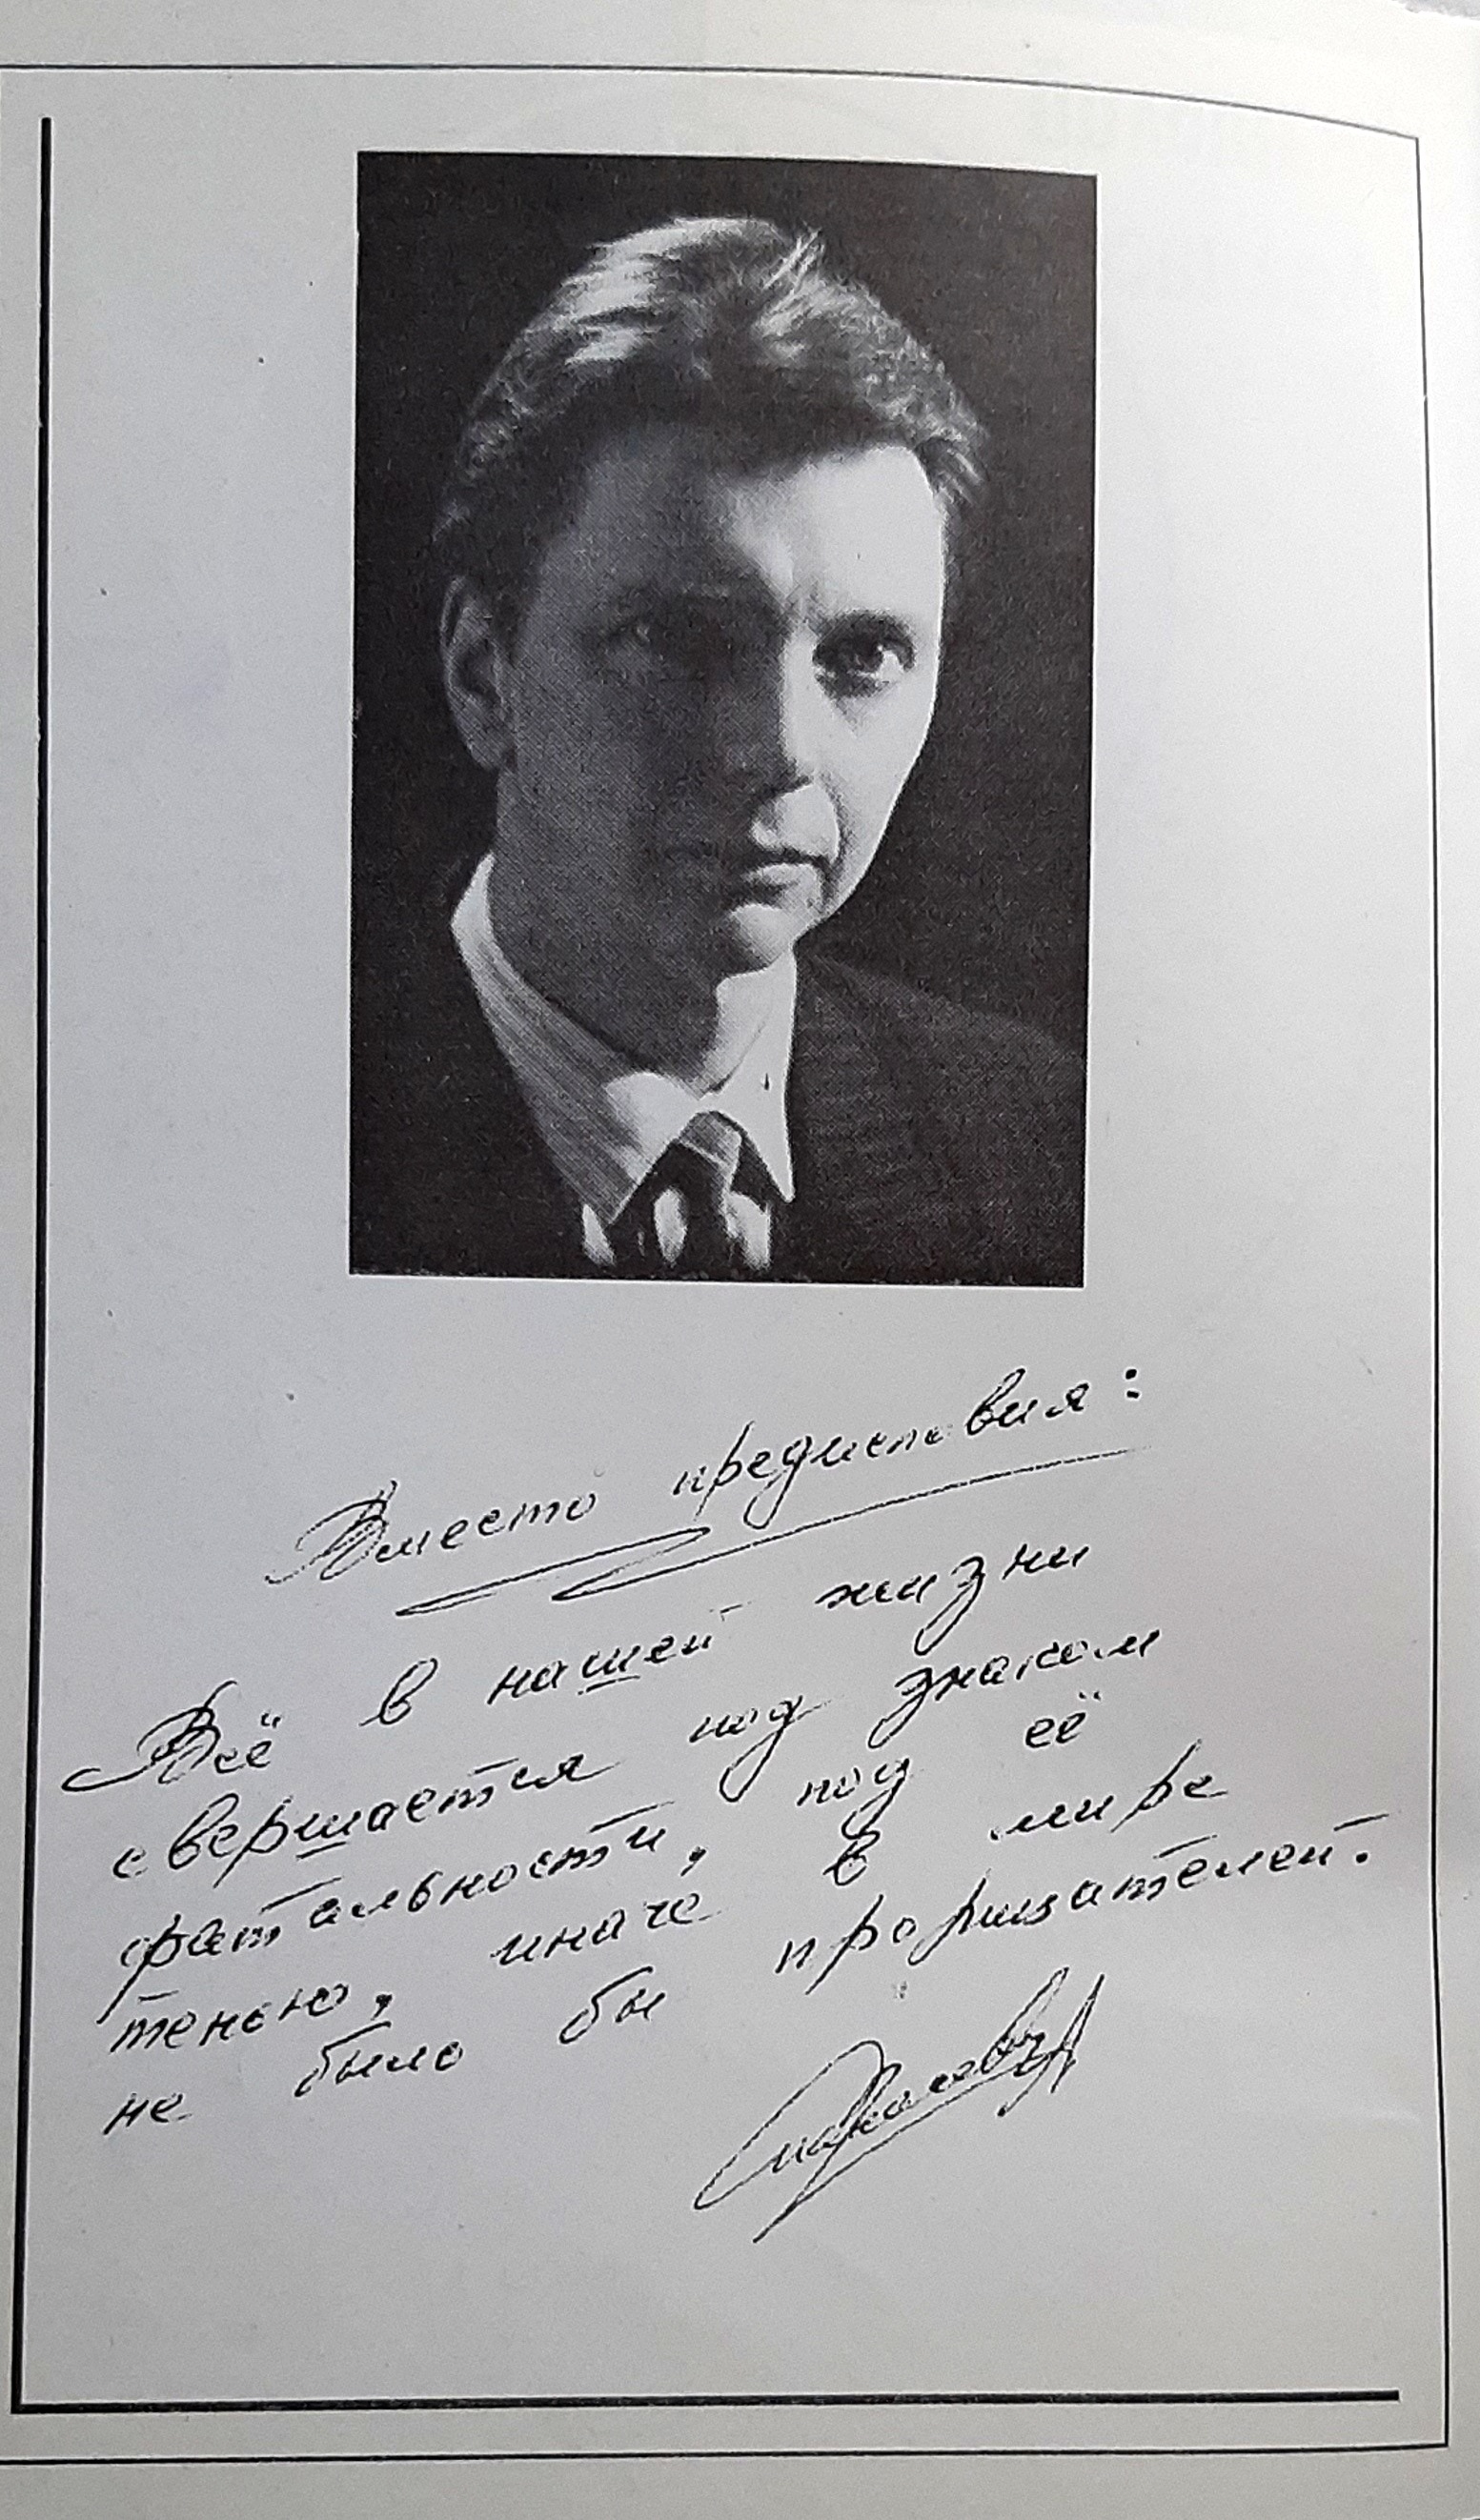 Вместо предисловия:
Всё в нашей жизни
свершается под знаком
фатальности, под её
тенью, иначе в мире
не было бы прорицателей.